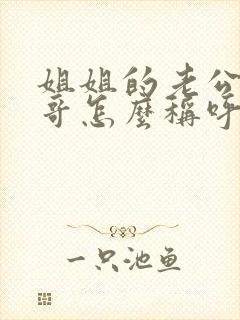 姐姐的老公
哥怎麼稱呼
一只池鱼